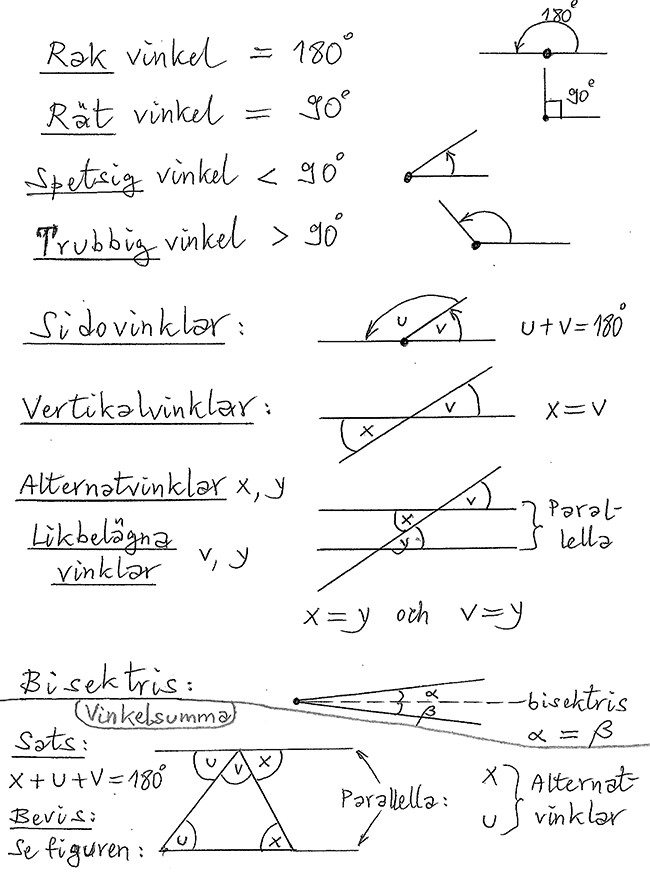 Rak vinkel = 180°
180°
Rät vinkel = 90°
90°
Spetsig vinkel < 90°
Trubbig vinkel > 90°
Sidovinklar:
u v
u + v = 180°
Vertikalvinklar:
x v
x = v
Alternatvinklar x, y
Likbelägna
vinklar
v, y
v
x
y
Paral-
lella
x = y och v = y
Bisektris:
α
β
bisektris
α = β
Vinkelsumma
Sats:
x + u + v = 180°
Bevis:
Se figuren:
u v x
u x
Parallella:
x
u
Alternat-
vinklar